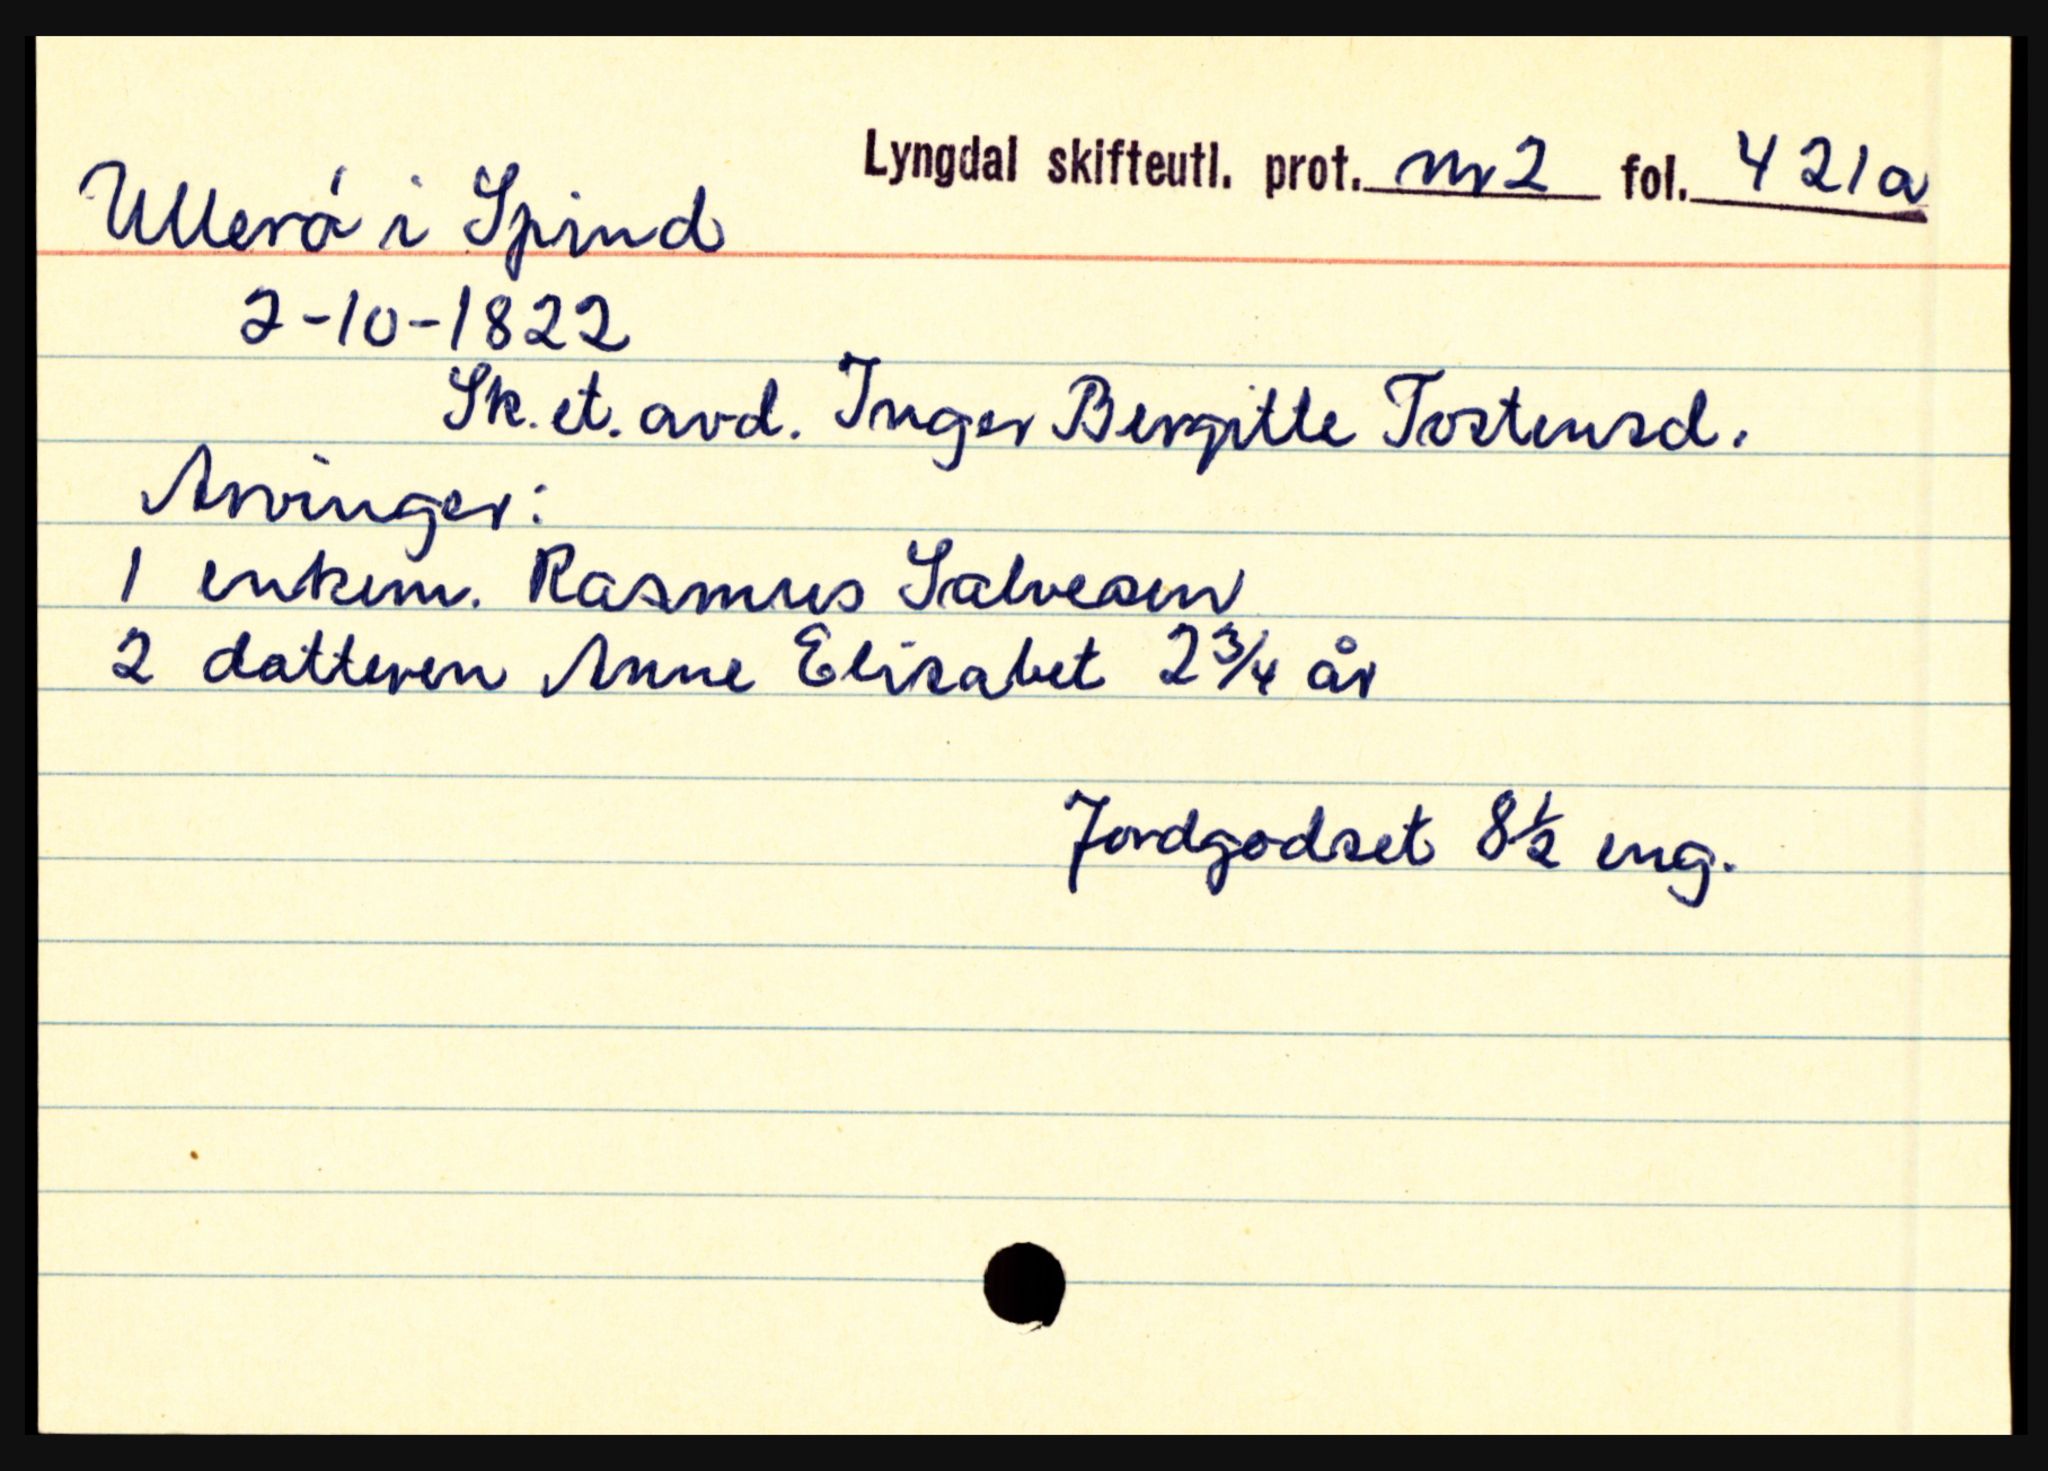 Lyngdal skifteutl. prot. nr 2 fol. 421a
Ullerå i Spind
2-10-1822
Sk. et. avd. Inger Bergitte Tostensd.
Arvinger:
1 enkem. Rasmus Salvesen
2 datteren Anne Elisabet 2 3/4 år
Jordgodset 8 1/2 eng.